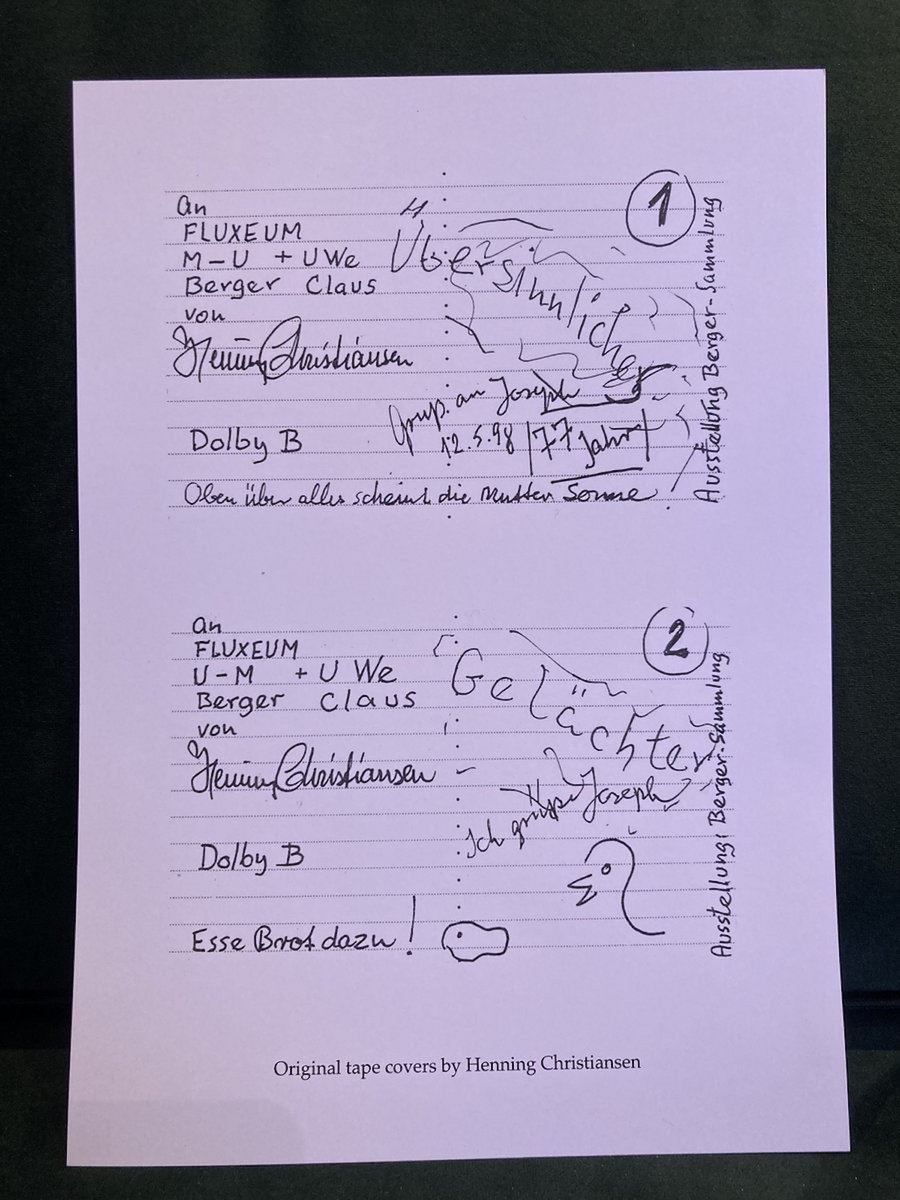 1
An
FLUXEUM
M-U + UWe
Berger Claus
von
Henning Christiansen
Übersinnlicher
Gruß an Joseph
12.5.98 77 Jahr
Dolby B
Oben über alles scheint die Mutter Sonne
Ausstellung Berger-Sammlung
2
An
FLUXEUM
U-M + U We
Berger Claus
von
Henning Christiansen
Gelächter
Ich grüße Joseph
Dolby B
Esse Brot dazu!
Ausstellung: Berger-Sammlung
Original tape covers by Henning Christiansen